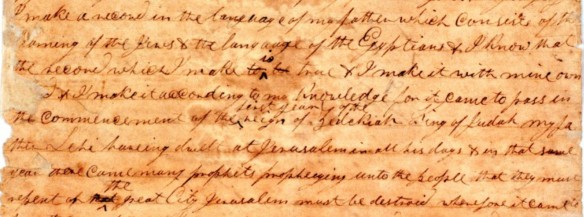 I make a record in the language of my father which consists of the
Larning of the Jews & the language of the Egyptians & I know that
the record which I make is true & I make it with mine own
& I make it according to my knowledge for it came to pass in
first year of the
the commencement of the reign of Zedekiah King of Judah my fa
ther Lehi haveing dwelt at Jerusalem in all his days & in that same
year there came many prophets prophesying unto the people that they must
the
repent or great City Jerusalem must be destroid wherefore it came